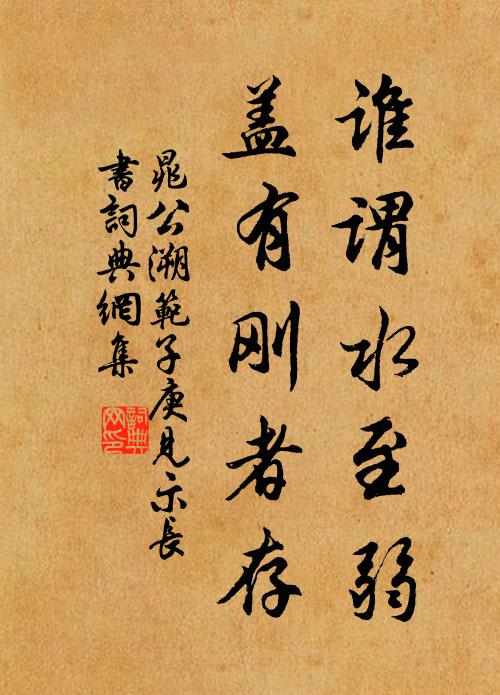 谁谓水至弱
盖有刚者存
晁公溯範子庚見示長
書詞典網集
詞典
网印